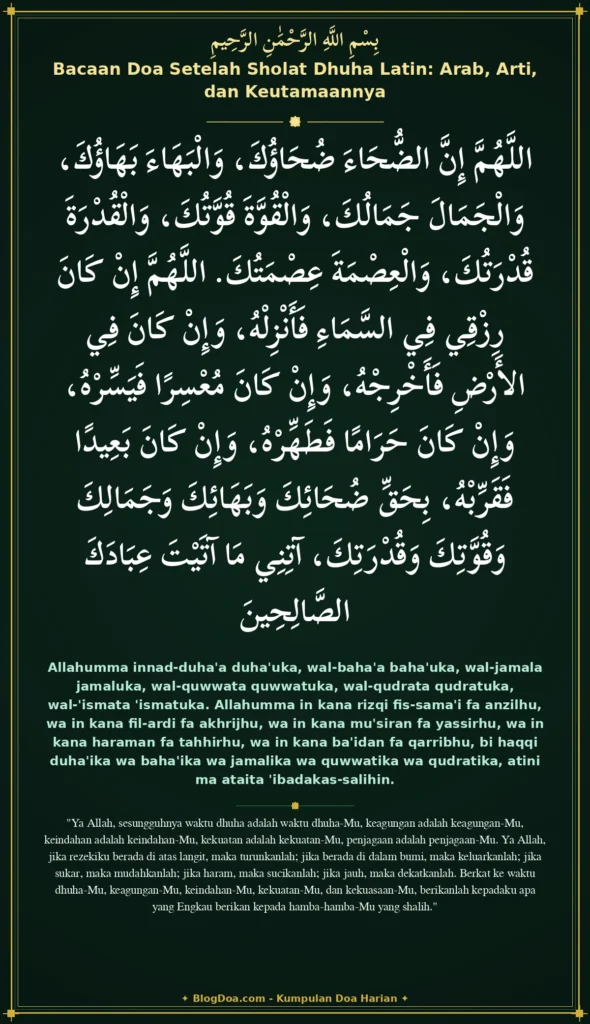 بِسْمِ اللَّهِ الرَّحْمَٰنِ الرَّحِيمِ
Bacaan Doa Setelah Sholat Dhuha Latin: Arab, Arti,
dan Keutamaannya
اللَّهُمَّ إِنَّ الضُّحَاءَ ضُحَاؤُكَ، وَالْبَهَاءَ بَهَاؤُكَ،
وَالْجَمَالَ جَمَالُكَ، وَالْقُوَّةَ قُوَّتُكَ، وَالْقُدْرَةَ
قُدْرَتُكَ، وَالْعِصْمَةَ عِصْمَتُكَ. اللَّهُمَّ إِنْ كَانَ
رِزْقِي فِي السَّمَاءِ فَأَنْزِلْهُ، وَإِنْ كَانَ فِي
الأَرْضِ فَأَخْرِجْهُ، وَإِنْ كَانَ مُعْسِرًا فَيَسِّرْهُ،
وَإِنْ كَانَ حَرَامًا فَطَهِّرْهُ، وَإِنْ كَانَ بَعِيدًا
فَقَرِّبْهُ، بِحَقِّ ضُحَائِكَ وَبَهَائِكَ وَجَمَالِكَ
وَقُوَّتِكَ وَقُدْرَتِكَ، آتِنِي مَا آتَيْتَ عِبَادَكَ
الصَّالِحِينَ
Allahumma innad-duha'a duha'uka, wal-baha'a baha'uka, wal-jamala
jamaluka, wal-quwwata quwwatuka, wal-qudrata qudratuka,
wal-'ismata 'ismatuka. Allahumma in kana rizqi fis-sama'i fa anzilhu,
wa in kana fil-ardi fa akhrijhu, wa in kana mu'siran fa yassirhu, wa in
kana haraman fa tahhirhu, wa in kana ba'idan fa qarribhu, bi haqqi
duha'ika wa baha'ika wa jamalika wa quwwatika wa qudratika, atini
ma ataita 'ibadakas-salihin.
"Ya Allah, sesungguhnya waktu dhuha adalah waktu dhuha-Mu, keagungan adalah keagungan-Mu,
keindahan adalah keindahan-Mu, kekuatan adalah kekuatan-Mu, penjagaan adalah penjagaan-Mu. Ya Allah,
jika rezekiku berada di atas langit, maka turunkanlah; jika berada di dalam bumi, maka keluarkanlah; jika
sukar, maka mudahkanlah; jika haram, maka sucikanlah; jika jauh, maka dekatkanlah. Berkat ke waktu
dhuha-Mu, keagungan-Mu, keindahan-Mu, kekuatan-Mu, dan kekuasaan-Mu, berikanlah kepadaku apa
yang Engkau berikan kepada hamba-hamba-Mu yang shalih."
✦ BlogDoa.com - Kumpulan Doa Harian ✦